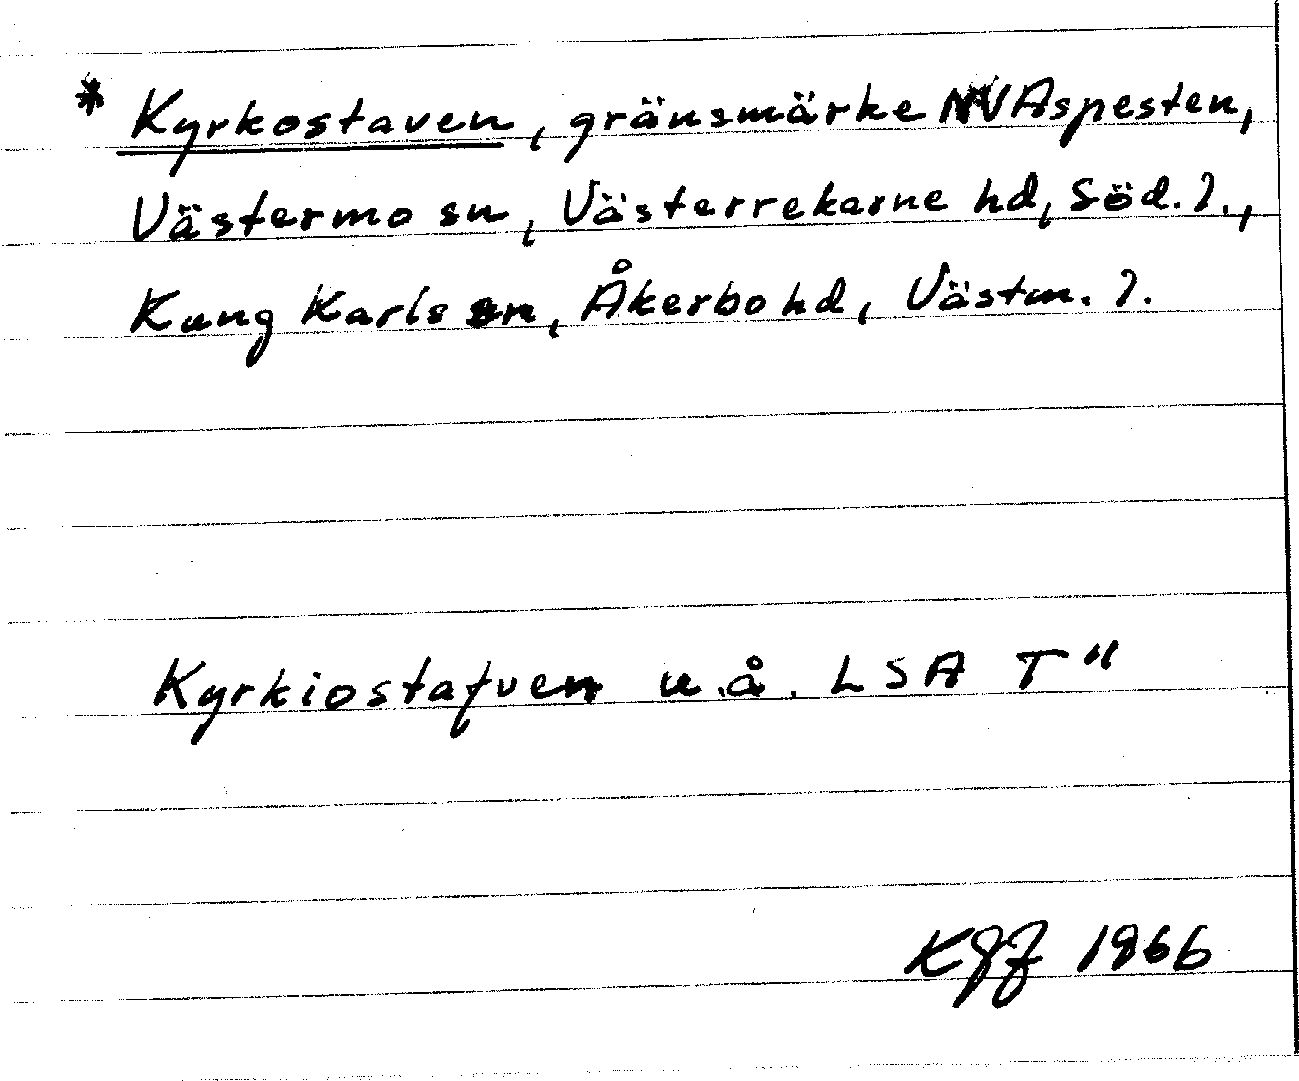 * Kyrkostaven, gränsmärke NV Aspesten,
Västermo sn, Västerrekarne hd, Söd. l.,
Kung Karls sn, Åkerbo hd, Västm. l.
Kyrkiostafven u.å. LSA T"
1966